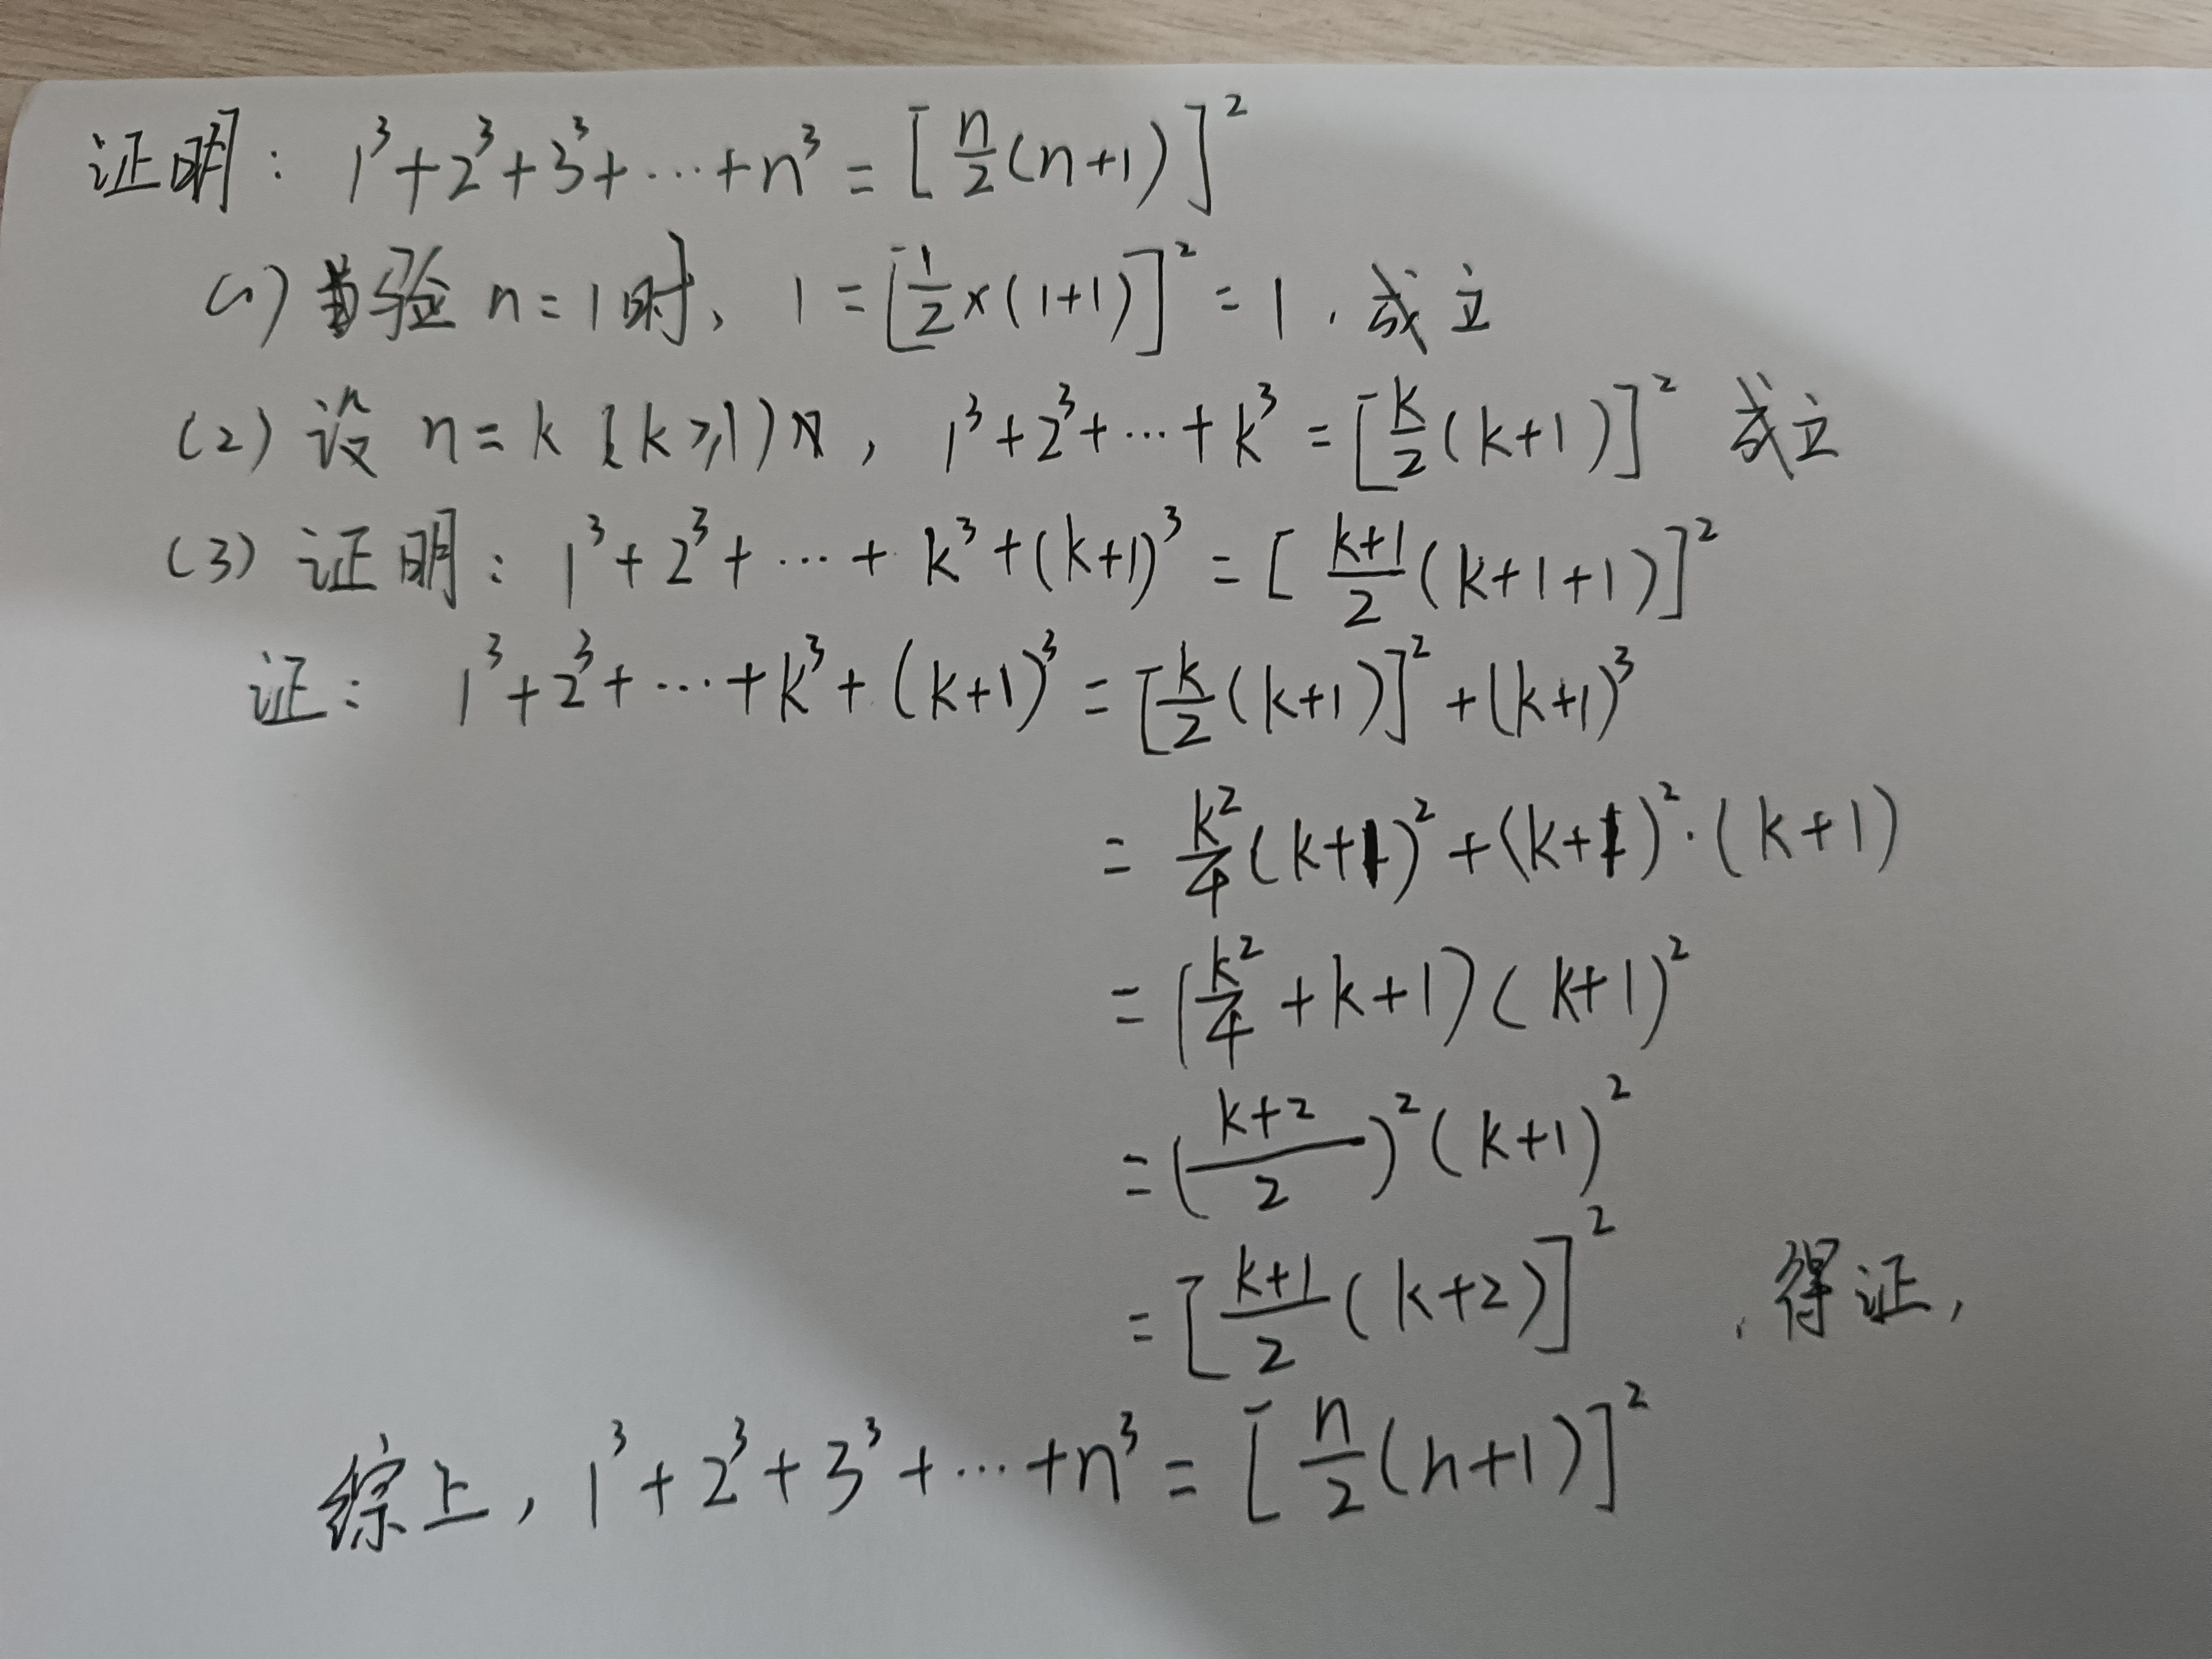 证明：1³+2³+3³+…+n³=[n/2(n+1)]²
(1) 验 n=1时，1=[1/2×(1+1)]²=1，成立
(2) 设 n=k (k≥1)，1³+2³+…+k³=[k/2(k+1)]² 成立
(3) 证明：1³+2³+…+k³+(k+1)³=[(k+1)/2(k+1+1)]²
证：1³+2³+…+k³+(k+1)³=[k/2(k+1)]²+(k+1)³
=k²/4(k+1)²+(k+1)²·(k+1)
=(k²/4+k+1)(k+1)²
=((k+2)/2)²(k+1)²
=[(k+1)/2(k+2)]² ，得证，
综上，1³+2³+3³+…+n³=[n/2(n+1)]²